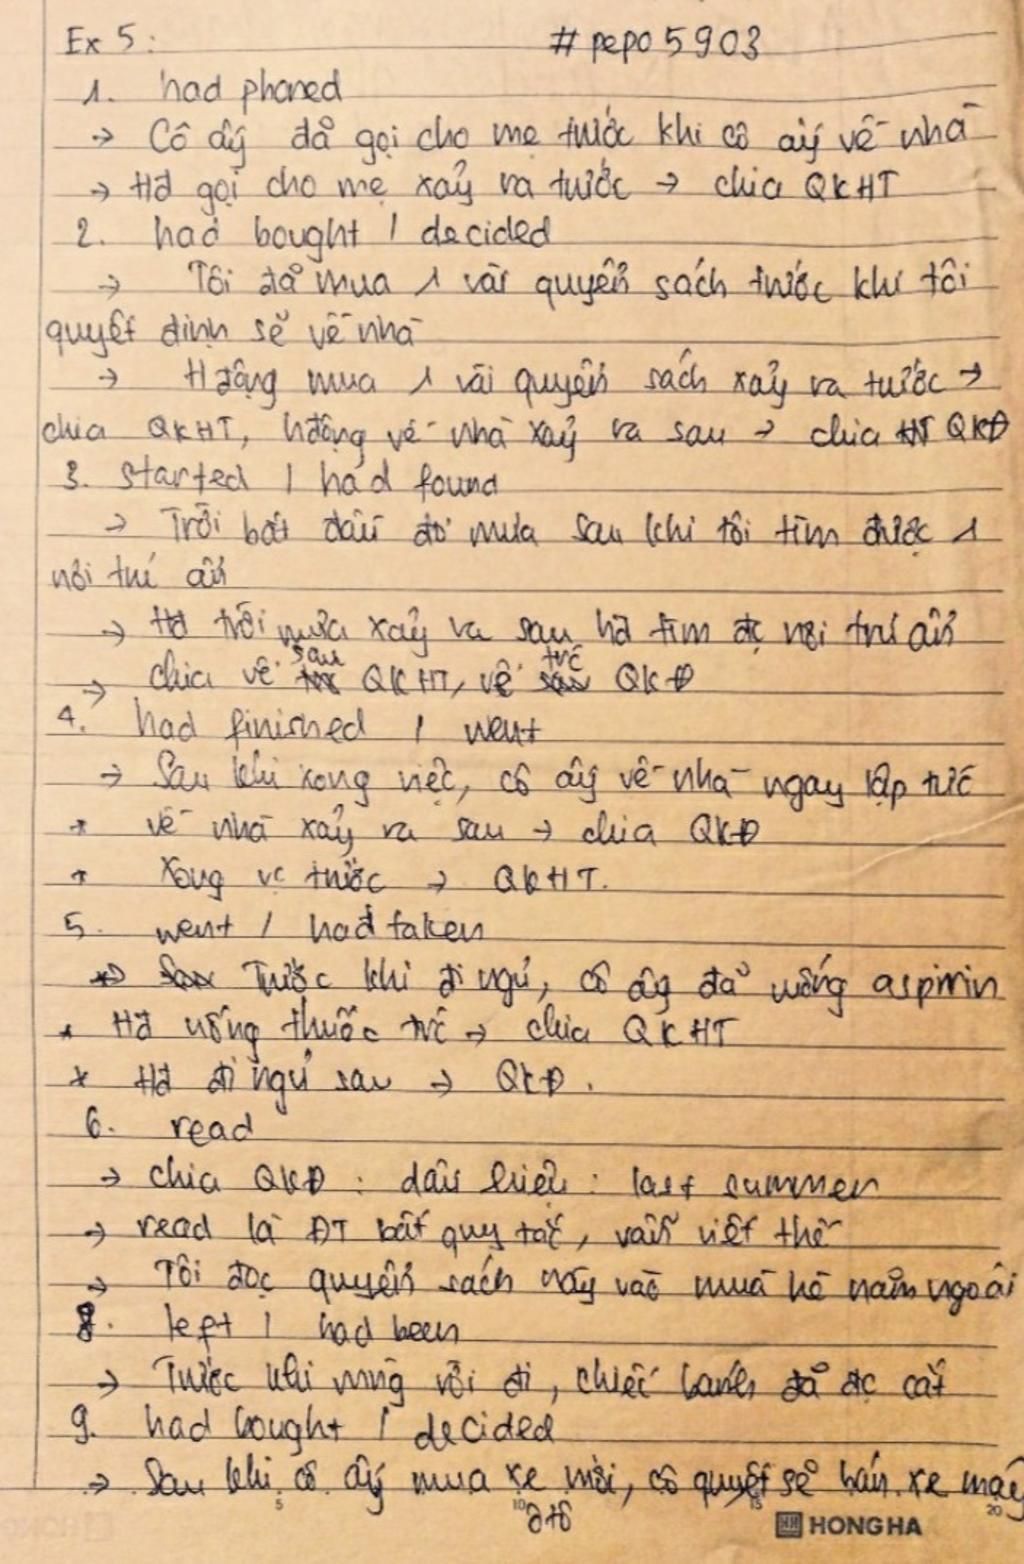 Ex 5: #pepo5903
1. had phoned
→ Cô ấy đã gọi cho mẹ trước khi cô ấy về nhà
→ Hđ gọi cho mẹ xảy ra trước → chia QKHT
2. had bought / decided
→ Tôi đã mua 1 vài quyển sách trước khi tôi
quyết định sẽ về nhà
→ H động mua 1 vài quyển sách xảy ra trước →
chia QKHT, hđộng về nhà xảy ra sau → chia QKĐ
3. started / had found
→ Trời bắt đầu đổ mưa sau khi tôi tìm được 1
nơi trú ẩn
→ Hđ trời mưa xảy ra sau hđ tìm đc nơi trú ẩn
→ chia vế sau QKHT, vế trc QKĐ
4. had finished / went
→ Sau khi xong việc, cô ấy về nhà ngay lập tức
+ về nhà xảy ra sau → chia QKĐ
+ Xong vc trước → QKHT.
5. went / had taken
→ Trước khi đi ngủ, cô ấy đã uống aspirin
* Hđ uống thuốc trc → chia QKHT
* Hđ đi ngủ sau → QKĐ.
6. read
→ chia QKĐ : dấu hiệu : last summer
→ read là ĐT bất quy tắc, vẫn viết thế
→ Tôi đọc quyển sách này vào mùa hè năm ngoái
8. left / had been
→ Trước khi rời đi, chiếc bánh đã đc cắt
9. had bought / decided
→ Sau khi cô ấy mua xe mới, cô quyết sẽ bán xe máy
ôtô
5 10 15 20
HONG HA